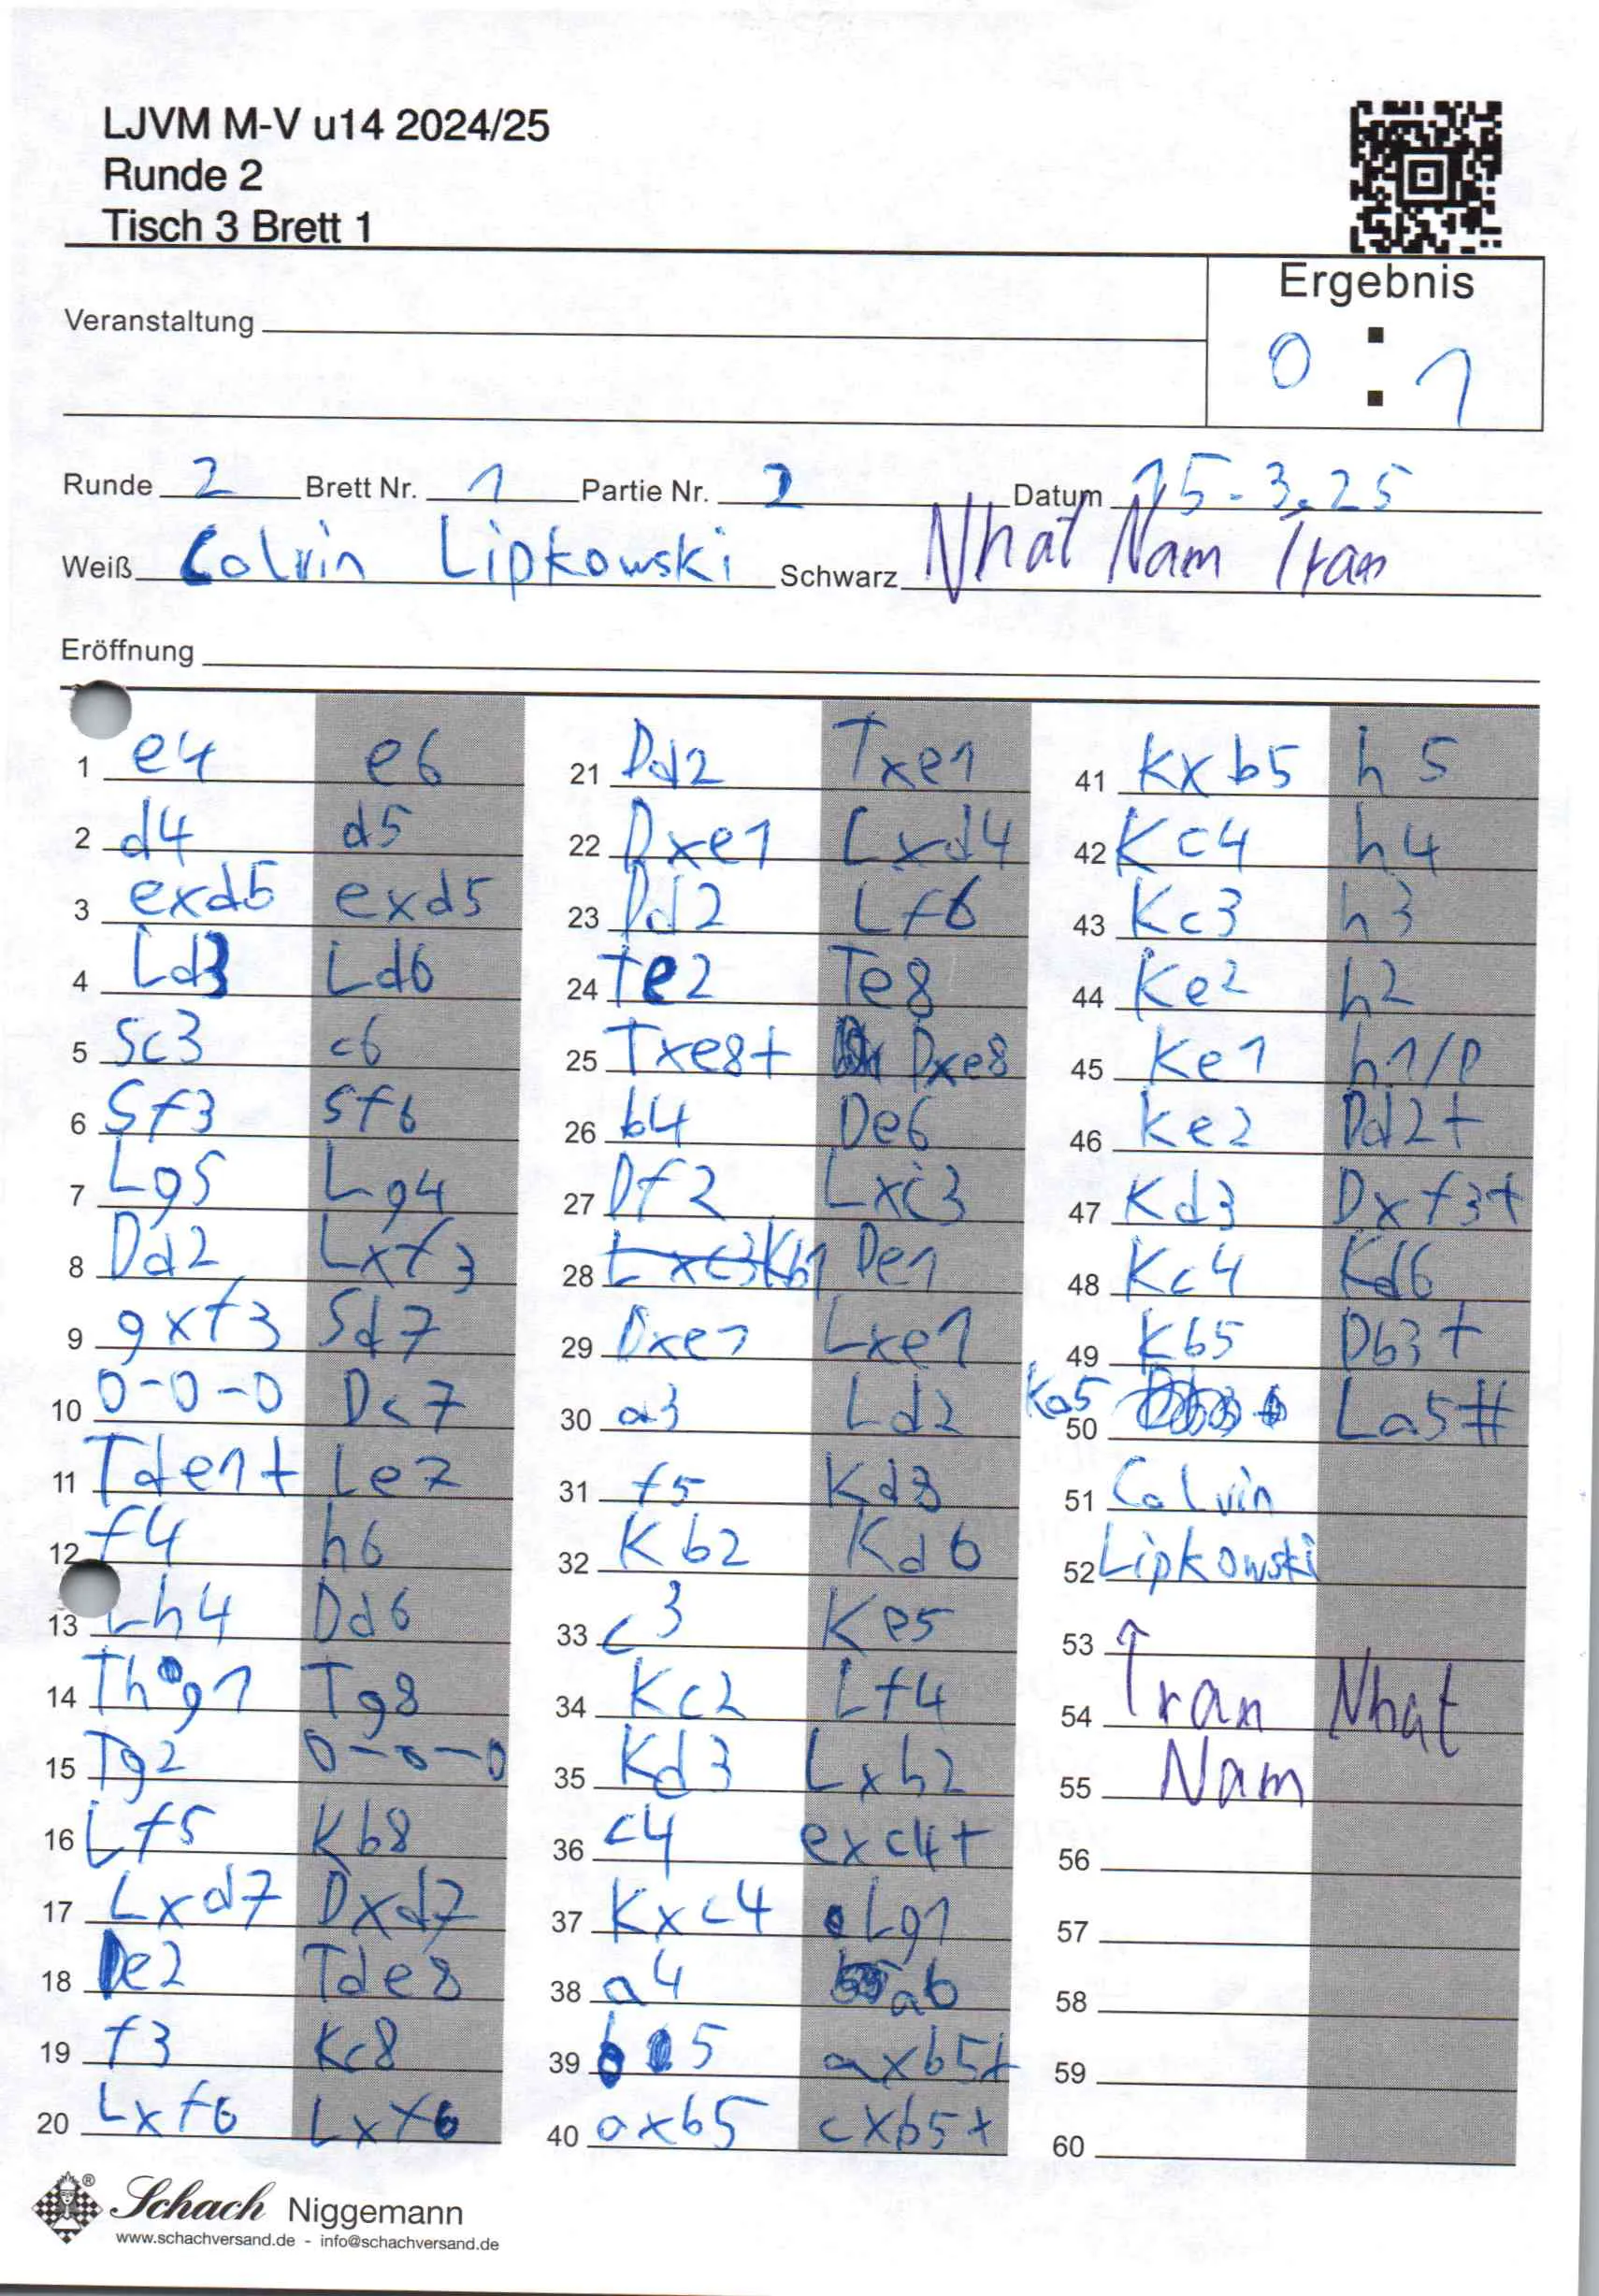 LJVM M-V u14 2024/25
Runde 2
Tisch 3 Brett 1
Ergebnis
0 : 1
Veranstaltung
Runde 2 Brett Nr. 1 Partie Nr. 2 Datum 15.3.25
Weiß Calvin Lipkowski Schwarz Nhat Nam Tran
Eröffnung
1 e4 e6
2 d4 d5
3 exd5 exd5
4 Ld3 Ld6
5 Sc3 c6
6 Sf3 Sf6
7 Lg5 Lg4
8 Dd2 Lxf3
9 gxf3 Sd7
10 0-0-0 Dc7
11 Tde1+ Le7
12 f4 h6
13 Lh4 Dd6
14 Thg1 Tg8
15 Tg2 0-0-0
16 Lf5 Kb8
17 Lxd7 Dxd7
18 De2 Tde8
19 f3 Kc8
20 Lxf6 Lxf6
21 Dd2 Txe1
22 Dxe1 Lxd4
23 Dd2 Lf6
24 Te2 Te8
25 Txe8+ Dxe8
26 b4 De6
27 Df2 Lxc3
28 Lxc3 Kb1 De1
29 Dxe1 Lxe1
30 a3 Ld2
31 f5 Kd8
32 Kb2 Kd6
33 c3 Ke5
34 Kc2 Lf4
35 Kd3 Lxh2
36 c4 exc4+
37 Kxc4 Lg1
38 a4 a6
39 b5 axb5+
40 axb5 cxb5+
41 Kxb5 h5
42 Kc4 h4
43 Kc3 h3
44 Ke2 h2
45 Ke1 h1/D
46 Ke2 Dd2+
47 Kd3 Dxf3+
48 Kc4 Kd6
49 Kb5 Db3+
50 Ka5 La5#
51 Calvin
52 Lipkowski
53
54 Tran Nhat
55 Nam
56
57
58
59
60
Schach Niggemann
®
www.schachversand.de - info@schachversand.de